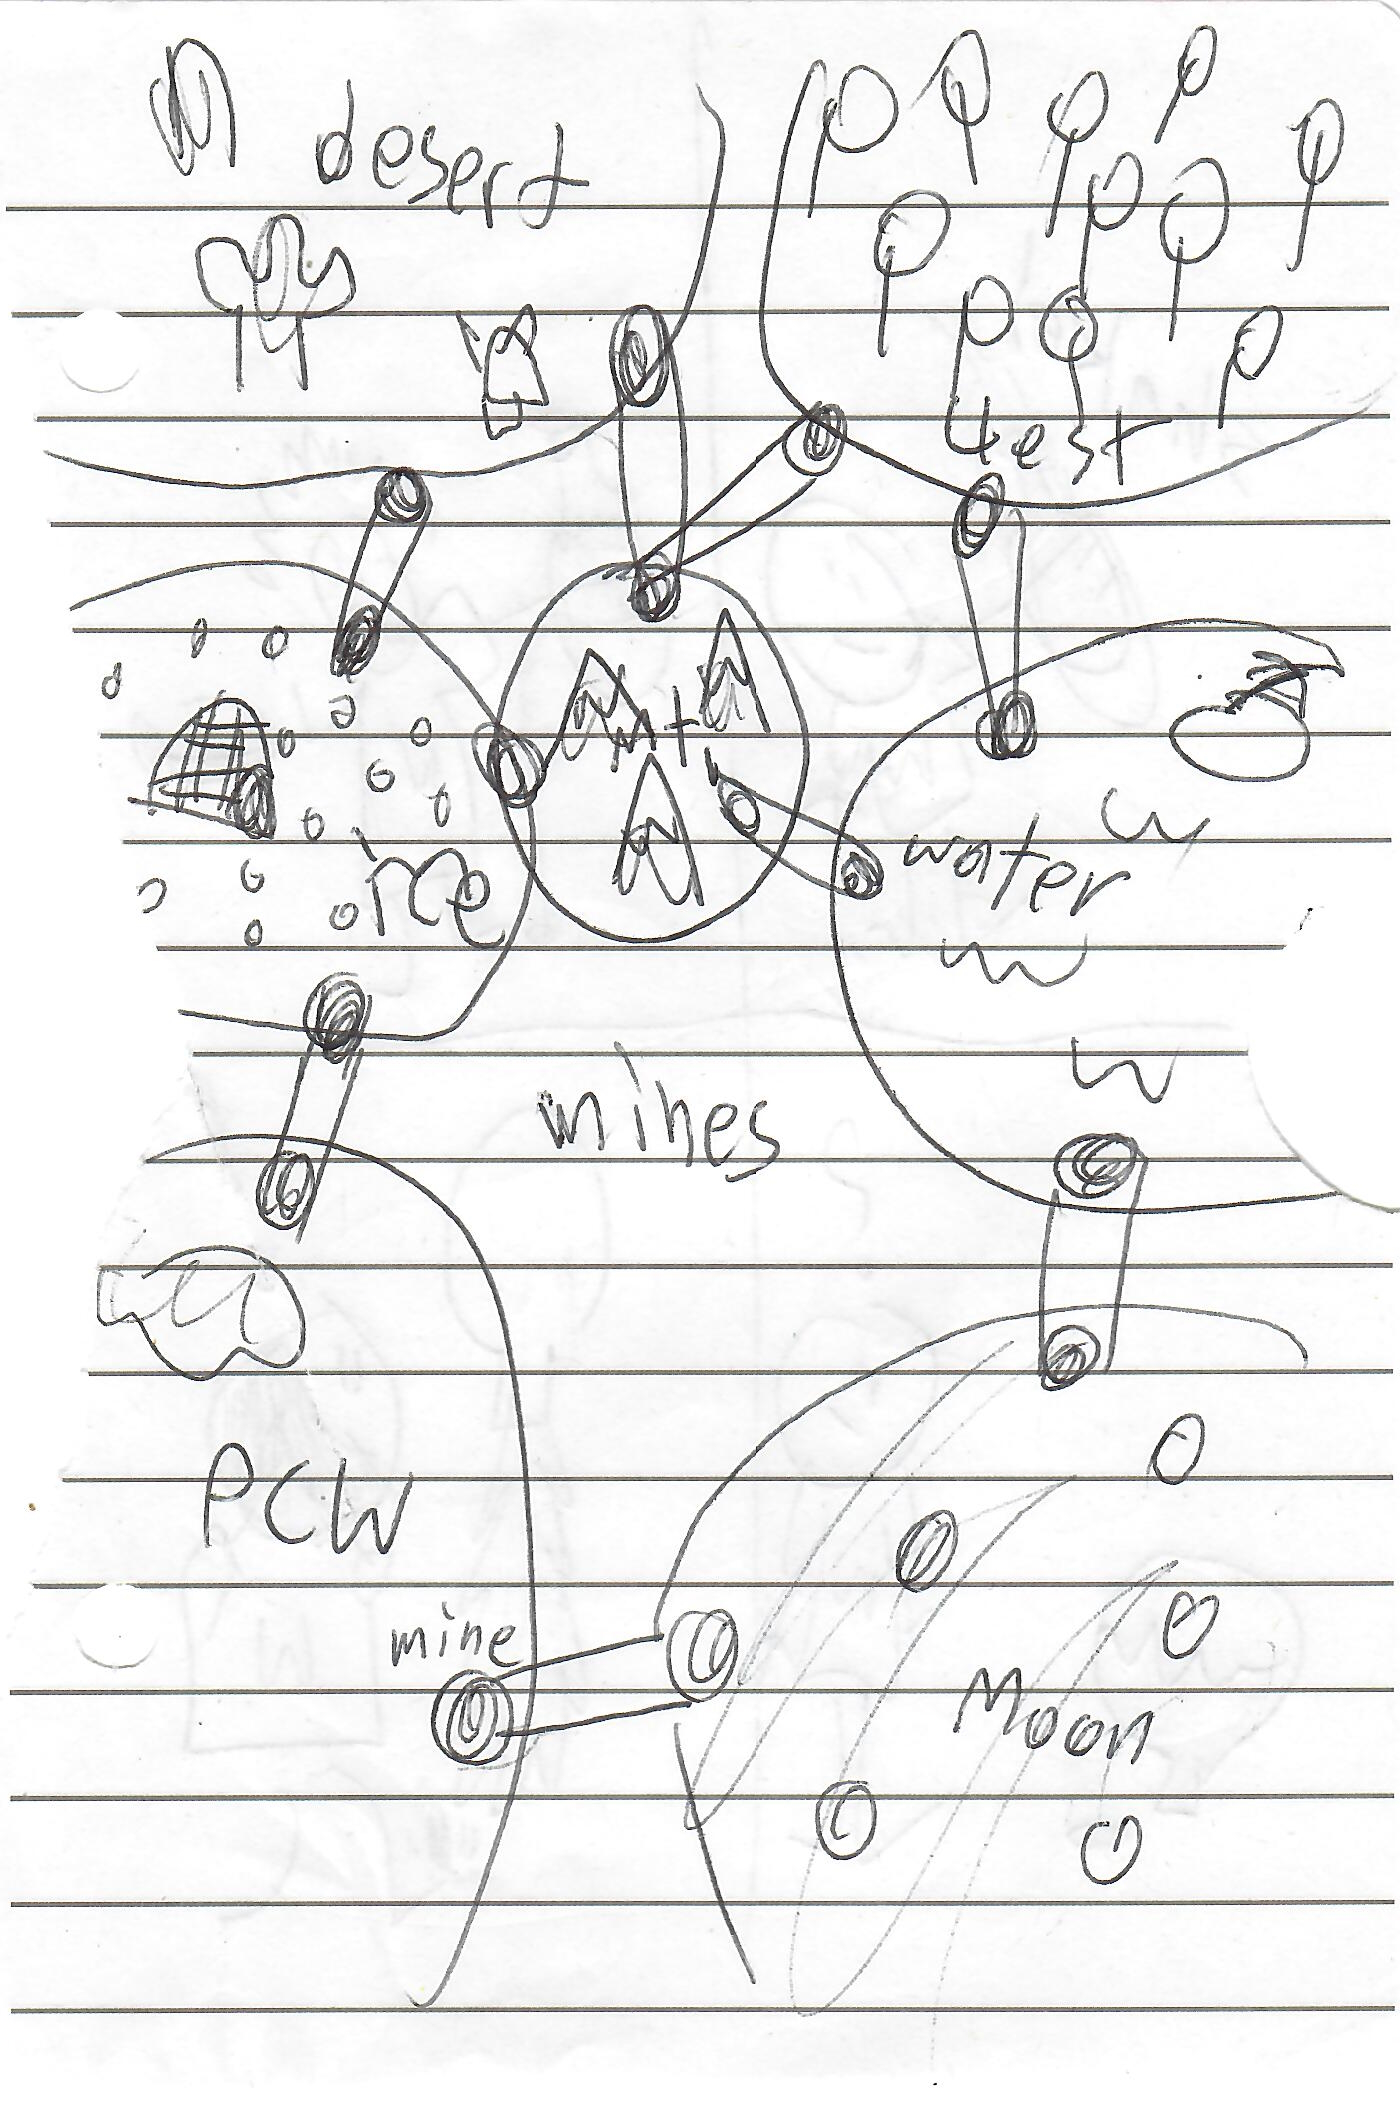 desert
4est
mt
water
ice
mines
PCW
mine
Moon